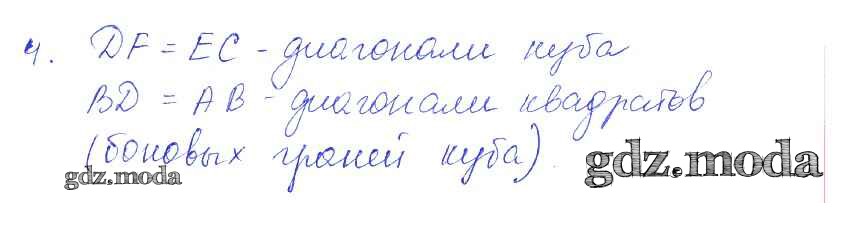 4. DF = EC - диагонали куба
BD = AB - диагонали квадратов
(боковых граней куба).
gdz.moda
gdz.moda